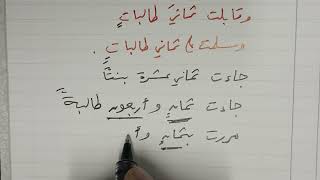 وقابلت ثمانيَ طالباتٍ
وسلمت على ثماني طالباتٍ.
جاءت ثماني عشرة بنتًا
جاءت ثمانٍ وأربعون طالبةً
مررت بثمانٍ وأ